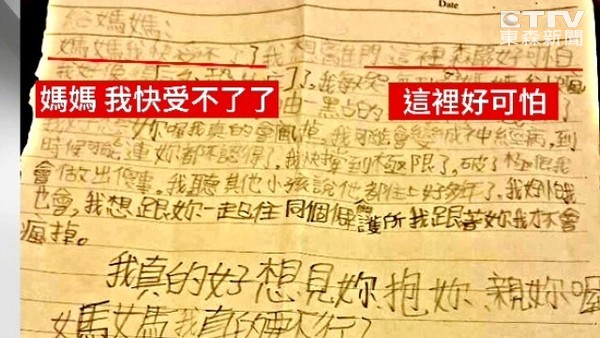 Date
ETTV
東森新聞
給媽媽:
媽媽我快受不了了我想離開這裡森嚴好可怕
媽媽 我快受不了了
這裡好可怕
妳喔我真的會瘋掉,我可能會變成神經病,到
時候可能連妳都不認得了。我快撐到極限了。破了極限我
會做出傻事。我聽其他小孩說他都住上好多年了。我好怕我
也會,我想跟妳一起住同個庇護所我跟著妳我才不會
瘋掉。
我真的好想見妳抱妳親妳喔
媽媽我真的